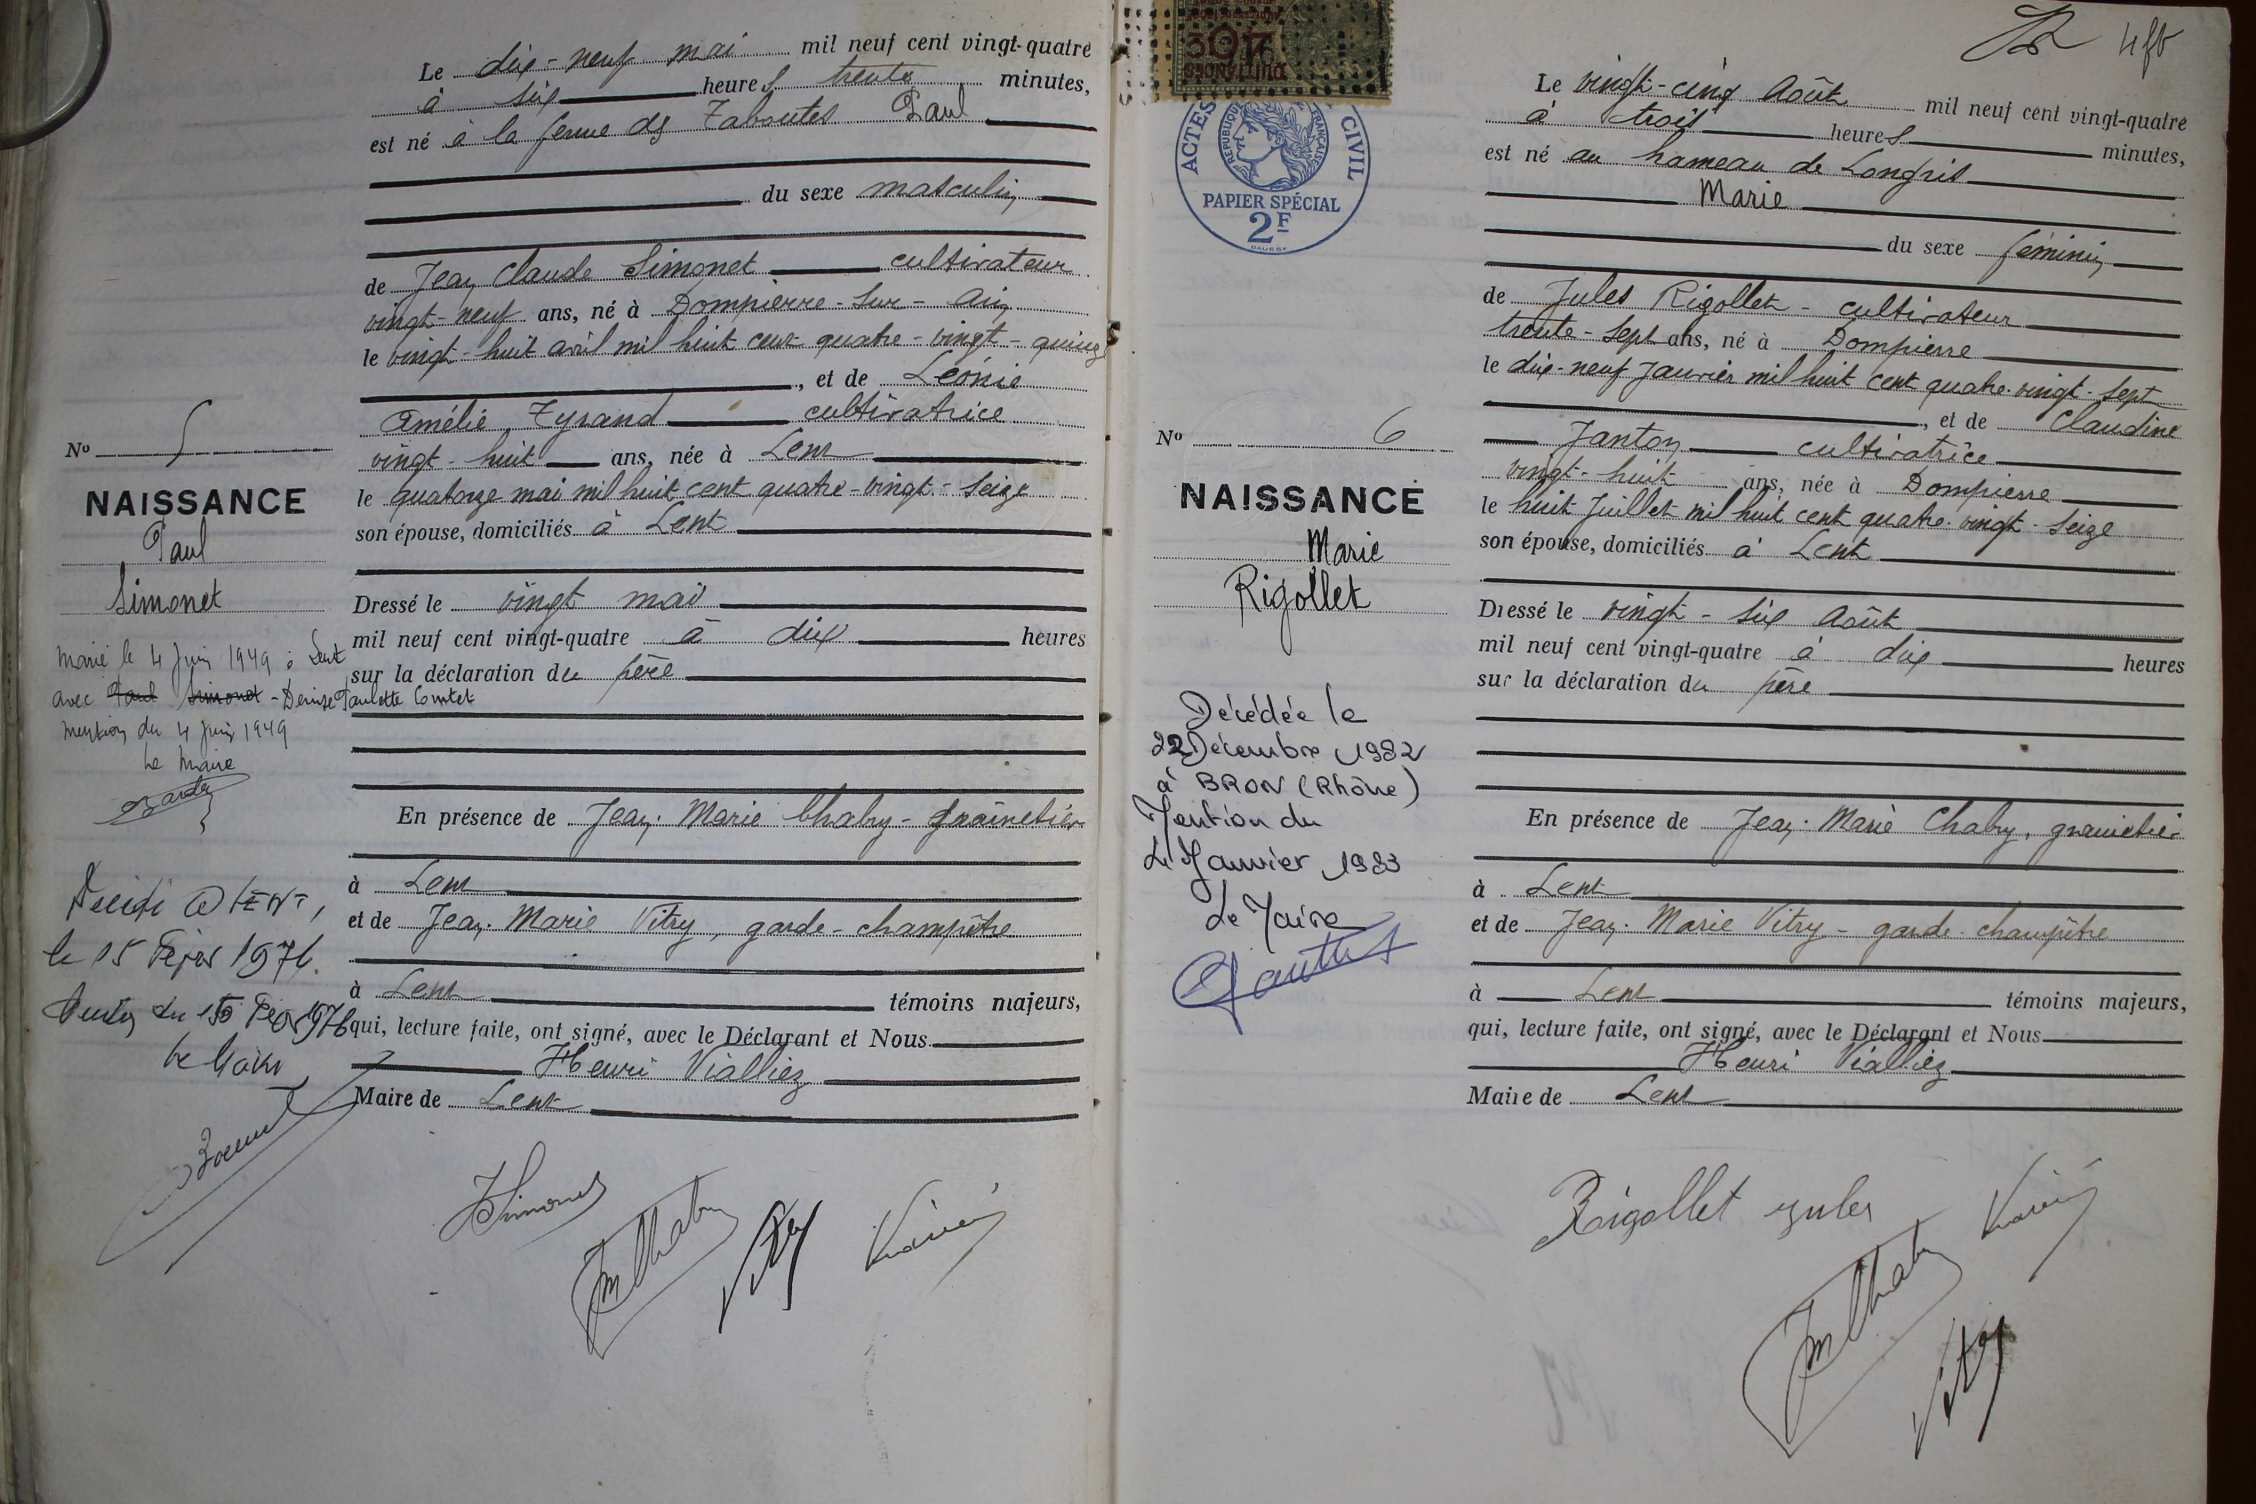 Le dix-neuf mai mil neuf cent vingt-quatre
à six heures trente minutes,
est né à la ferme des Taboutes Paul
du sexe masculin
de Jean Claude Simonet cultivateur
vingt-neuf ans, né à Dompierre-sur-Ain
le vingt-huit avril mil huit cent quatre-vingt-quinze
, et de Léonie
Amélie Tyrand cultivatrice
vingt-huit ans, née à Lent
le quatorze mai mil huit cent quatre-vingt-seize
son épouse, domiciliés à Lent
Dressé le vingt mai
mil neuf cent vingt-quatre à dix heures
sur la déclaration du père
En présence de Jean-Marie Chabry-grainetier
à Lent
et de Jean-Marie Vitry, garde-champêtre
à Lent témoins majeurs,
qui, lecture faite, ont signé, avec le Déclarant et Nous
Henri Vialliez
Maire de Lent
No 5
NAISSANCE
Paul
Simonet
Marié le 4 Juin 1949 à Lent
avec Paul Simonet - Denise Paulette Comtet
Mention du 4 Juin 1949
Le Maire
Décédé à LENT,
le 15 Fév 1976.
du 15 Fév 1976
Le Maire
JSimonet
JmChabry
Vitry
4 fb
ACTES CIVIL
REPUBLIQUE FRANÇAISE
PAPIER SPÉCIAL
2F
Le vingt-cinq Août mil neuf cent vingt-quatre
à trois heures minutes,
est né au hameau de Longris
Marie
du sexe féminin
de Jules Rigollet - cultivateur
trente-sept ans, né à Dompierre
le dix-neuf Janvier mil huit cent quatre-vingt-sept
, et de Claudine
Janton cultivatrice
vingt-huit ans, née à Dompierre
le huit Juillet mil huit cent quatre-vingt-seize
son épouse, domiciliés à Lent
Dressé le vingt-six Août
mil neuf cent vingt-quatre à dix heures
sur la déclaration du père
En présence de Jean-Marie Chabry, grainetier
à Lent
et de Jean-Marie Vitry - garde-champêtre
à Lent témoins majeurs,
qui, lecture faite, ont signé, avec le Déclarant et Nous
Henri Vialliez
Maire de Lent
No 6
NAISSANCE
Marie
Rigollet
Décédée le
22 Décembre 1982
à BRON (Rhône)
Mention du
4 Janvier 1983
Le Maire
Rigollet jules
JmChabry
Vitry